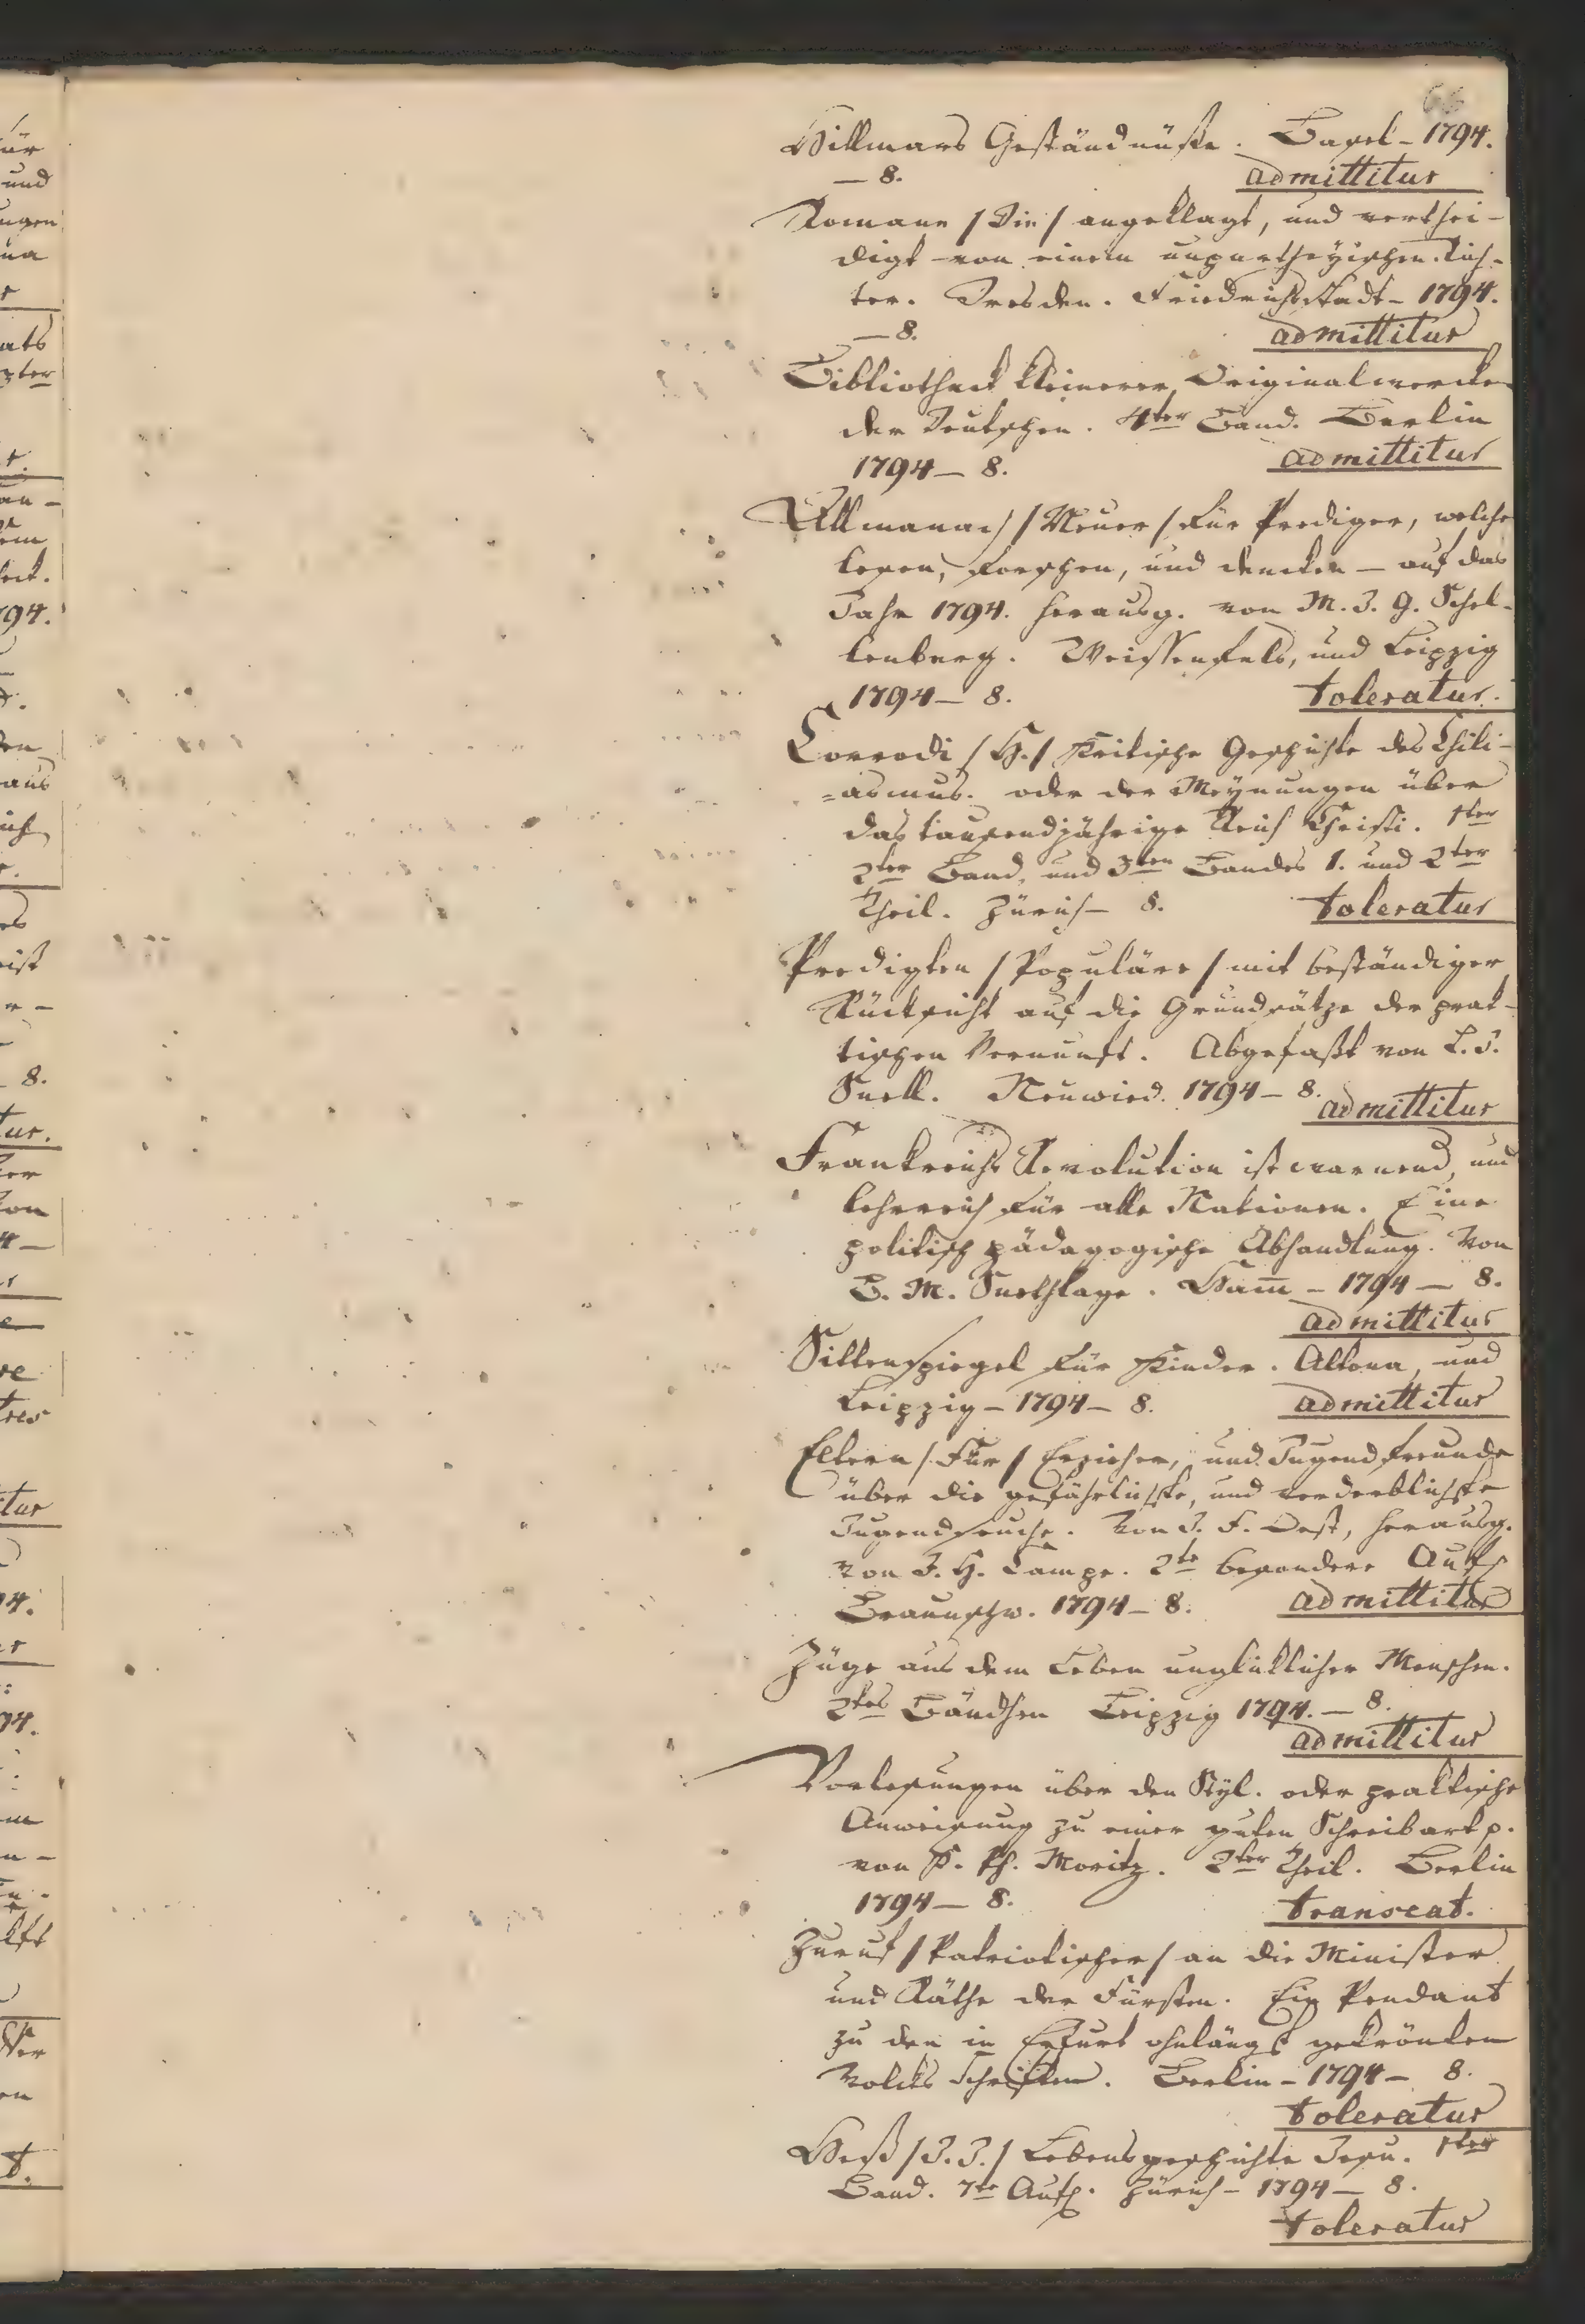 66
Hillmars Geständnüße. Basel - 1794.
— 8. admittitur
Romane / Die / angeklagt, und verthei-
digt von einem unpartheyischen Rich-
ter. Dresden. Friedrichstadt - 1794.
— 8. admittitur
Bibliotheck kleinerer Originalwercke
der Deutschen. 4ter Band. Berlin
1794 — 8. admittitur
Allmanach / Neuer / für Prediger, welche
lesen, forschen, und dencken — auf das
Jahr 1794. herausg. von M. J. G. Schel-
lenberg. Weissenfels, und Leipzig
1794 — 8. toleratur.
Corrodi / H. / Kritische Geschichte des Chili-
=asmus. oder der Meynungen über
das tausendjährige Reich Christi. 1ter
2ter Band, und 3ten Bandes 1. und 2ter
Theil. Zürich — 8. toleratur
Predigten / Populäre / mit beständiger
Rücksicht auf die Grundsätze der prak-
tischen Vernunft. Abgefaßt von L. J.
Snell. Neuwied. 1794 — 8. admittitur
Frankreichs Revolution ist warnend, und
lehrreich für alle Nationen. Eine
politisch pädagogische Abhandlung. Von
B. M. Snethlage. Ham̄ - 1794 — 8.
admittitur
Sittenspiegel für Kinder. Altona, und
Leipzig - 1794 — 8. admittitur
Eltern / Für / Erzieher, und Jugendfreunde
über die gefährlichste, und verderblichste
Jugendseuche. Von J. F. Oest, herausg.
von J. H. Campe. 2te besondere Aufl.
Braunschw. 1794 — 8. admittitur
Züge aus dem Leben unglücklicher Menschen.
2tes Bändchen Leipzig 1794. — 8.
admittitur
Vorlesungen über den Styl. oder praktische
Anweisung zu einer guten Schreibart p.
von K. Ph. Moritz. 2ter Theil. Berlin
1794 — 8. transeat.
Zuruf / Patriotischer / an die Minister
und Räthe der Fürsten. Ein Pendant
zu den in Erfurt ohnlängst gekrönten
Volcks Schriften. Berlin - 1794 — 8.
toleratur
Heß / J. J. / Lebensgeschichte Jesu. 1ter
Band. 7te Aufl. Zürich - 1794 — 8.
toleratur